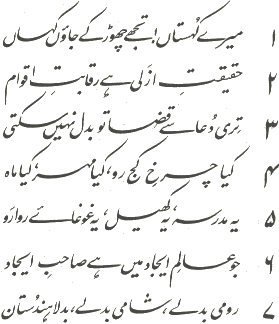 ۱ میرے کُہستاں! تجھے چھوڑ کے جاؤں کہاں
۲ حقیقتِ ازَلی ہے رقابتِ اقوام
۳ تِری دُعا سے قضا تو بدل نہیں سکتی
۴ کیا چرخِ کج رو، کیا مہر، کیا ماہ
۵ یہ مدرسہ یہ کھیل یہ غوغائے روارَو
۶ جو عالمِ ایجاد میں ہے صاحبِ ایجاد
۷ رومی بدلے، شامی بدلے، بدلا ہندُستان